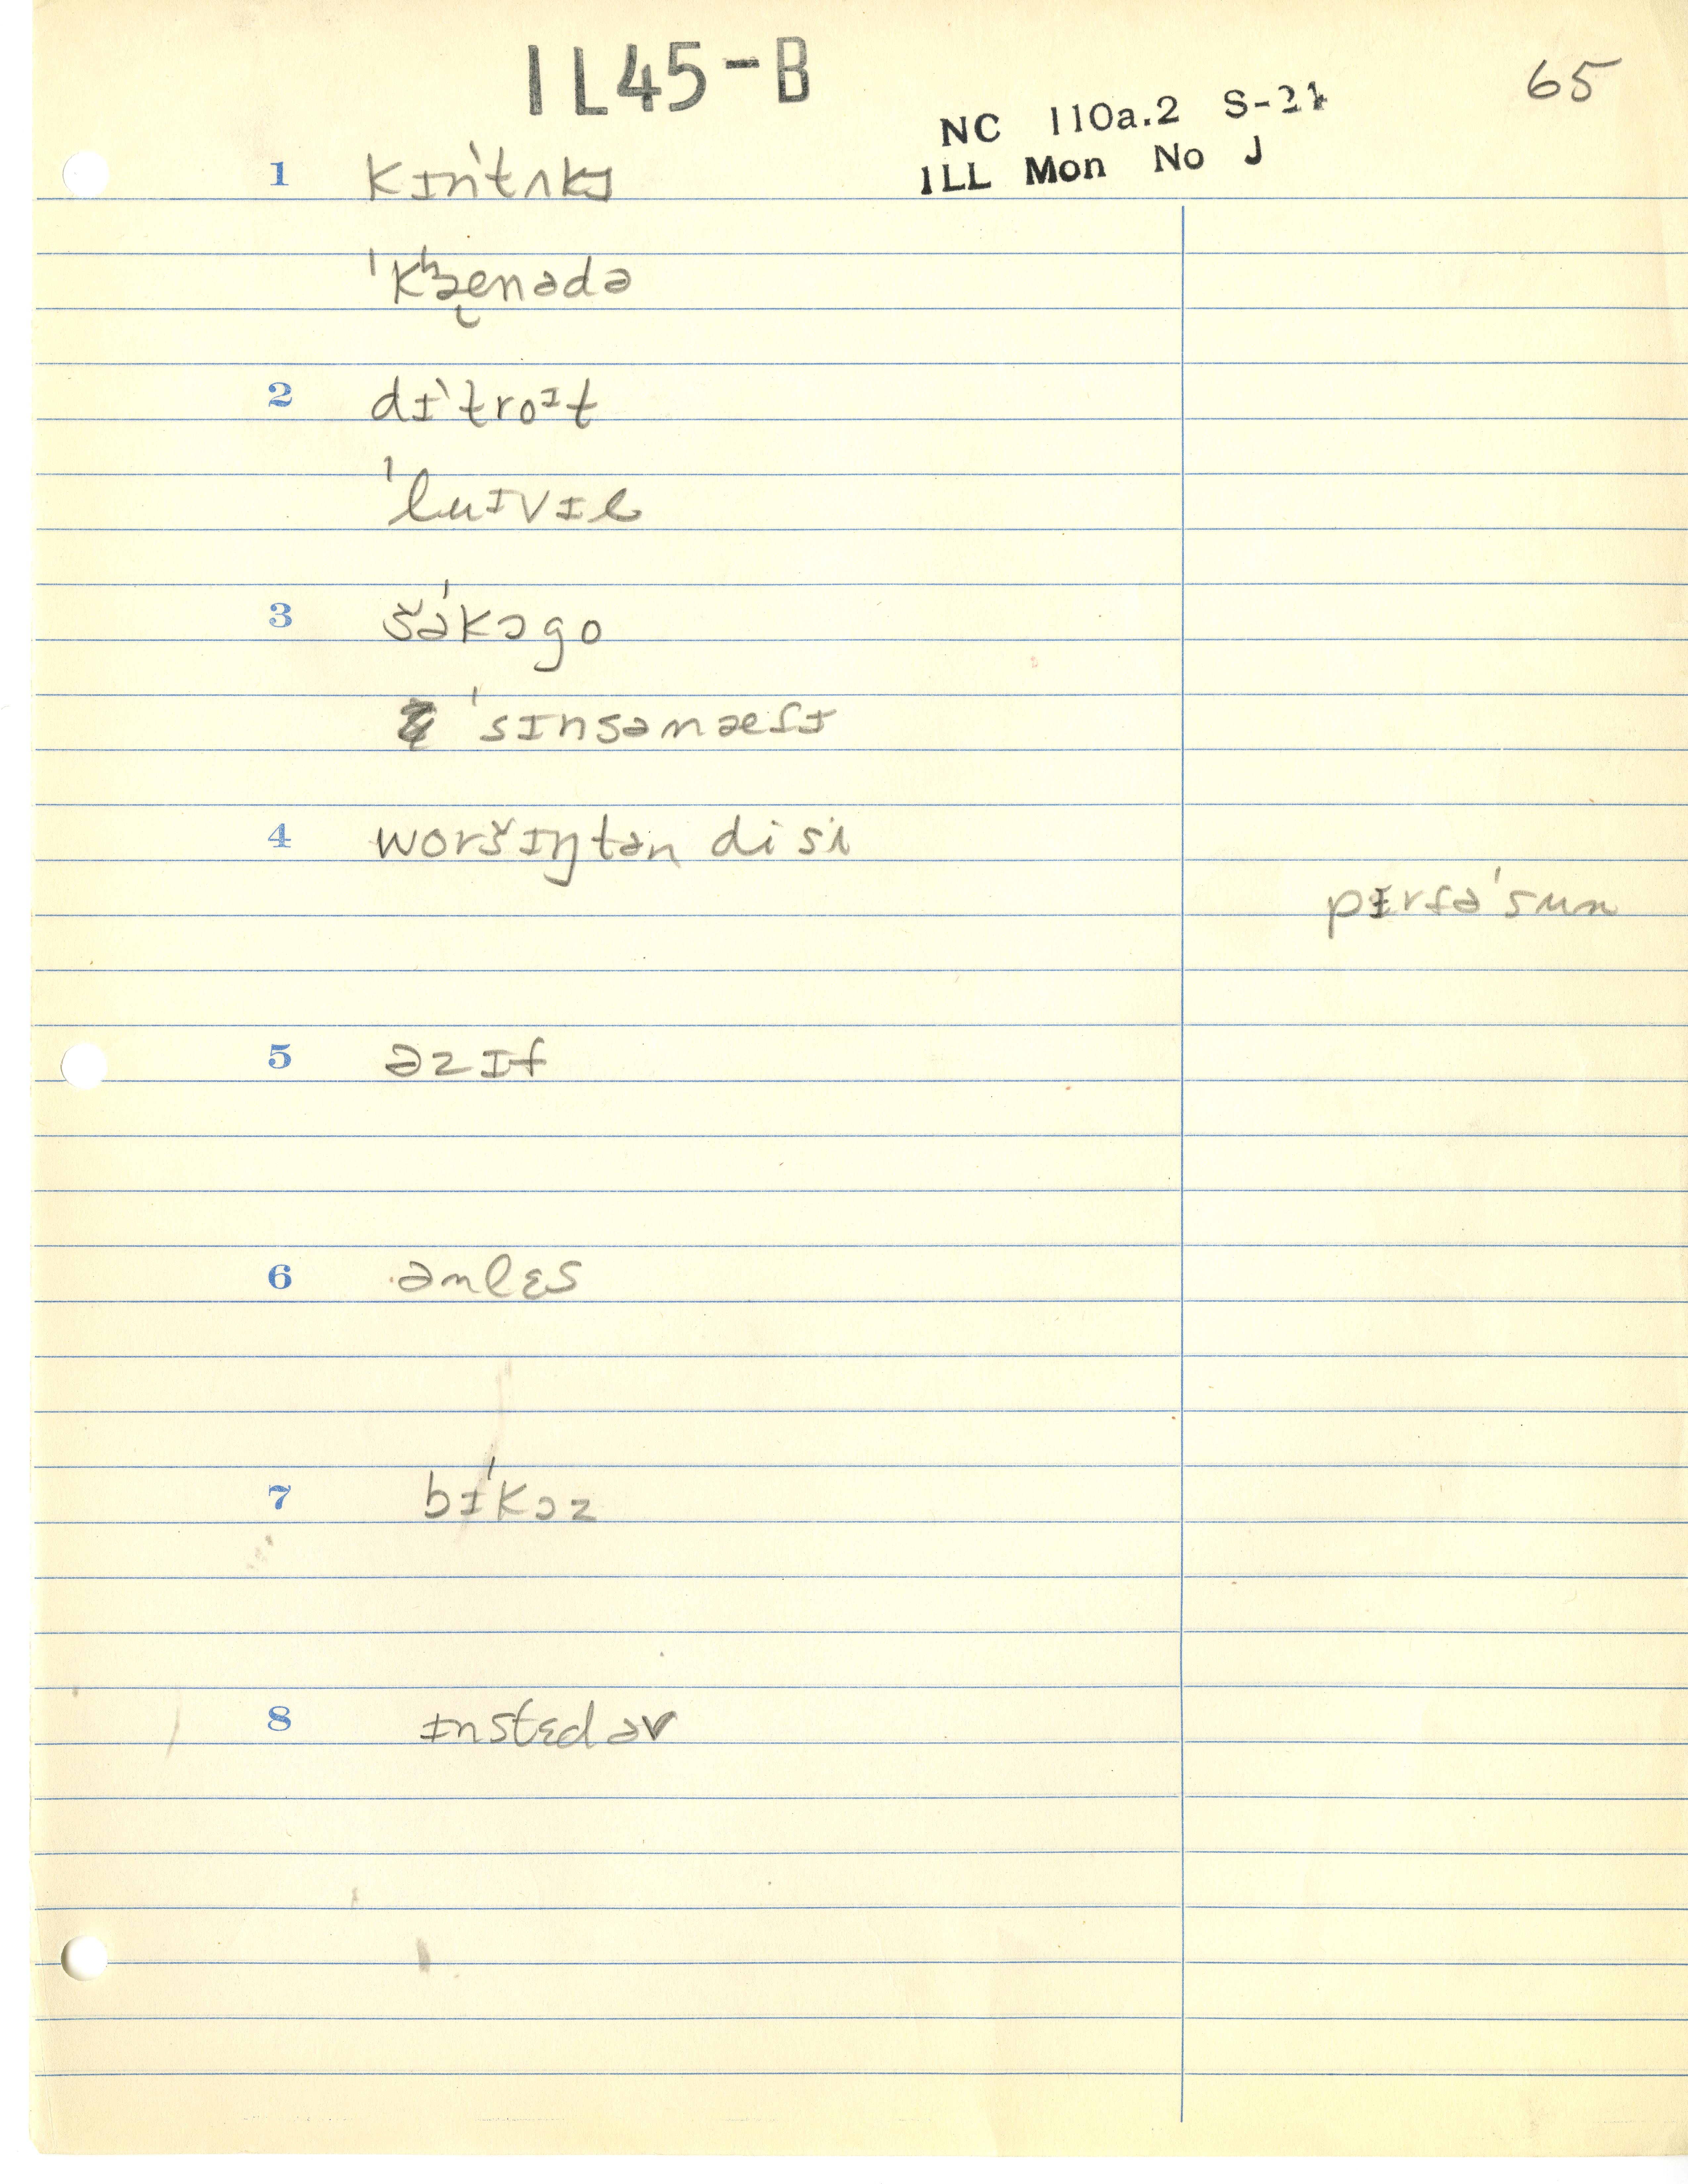 IL45-B
65
NC 110a.2 S-21
ILL Mon No J
1 kɪn'tʌkɪ
'kʰæ̜nədə
2 dɪ't̬roɪt
'luɪvɪl
3 šə'kɔgo
'sɪnsənæt̬ɪ
4 woršɪŋtən di si
pɪrt̬ə'sun
5 əzɪf
6 ənlɛs
7 bɪ'kɔz
8 ɪnstɛd əv